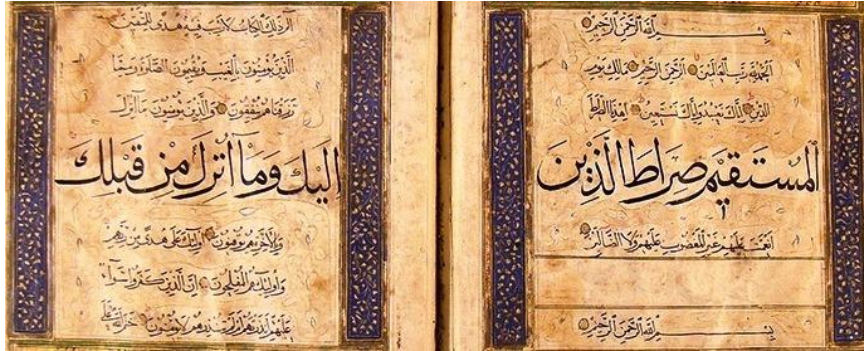 بِسْمِ اللَّهِ الرَّحْمَنِ الرَّحِيمِ
الْحَمْدُ لِلَّهِ رَبِّ الْعَالَمِينَ الرَّحْمَنِ الرَّحِيمِ مَالِكِ يَوْمِ
الدِّينِ اِيَّاكَ نَعْبُدُ وَاِيَّاكَ نَسْتَعِينُ اِهْدِنَا الصِّرَاطَ
الْمُسْتَقِيمَ صِرَاطَ الَّذِينَ
اَنْعَمْتَ عَلَيْهِمْ غَيْرِ الْمَغْضُوبِ عَلَيْهِمْ وَلَا الضَّالِّينَ
بِسْمِ اللَّهِ الرَّحْمَنِ الرَّحِيمِ
الم ذَلِكَ الْكِتَابُ لَا رَيْبَ فِيهِ هُدًى لِلْمُتَّقِينَ
الَّذِينَ يُؤْمِنُونَ بِالْغَيْبِ وَيُقِيمُونَ الصَّلٰوةَ وَمِمَّا
رَزَقْنَاهُمْ يُنْفِقُونَ وَالَّذِينَ يُؤْمِنُونَ بِمَا اُنْزِلَ
اِلَيْكَ وَمَا اُنْزِلَ مِنْ قَبْلِكَ
وَبِالْاٰخِرَةِ هُمْ يُوقِنُونَ اُولٰئِكَ عَلَى هُدًى مِنْ رَبِّهِمْ
وَاُولٰئِكَ هُمُ الْمُفْلِحُونَ اِنَّ الَّذِينَ كَفَرُوا سَوَاءٌ
عَلَيْهِمْ ءَاَنْذَرْتَهُمْ اَمْ لَمْ تُنْذِرْهُمْ لَا يُؤْمِنُونَ خَتَمَ اللَّهُ عَلَى